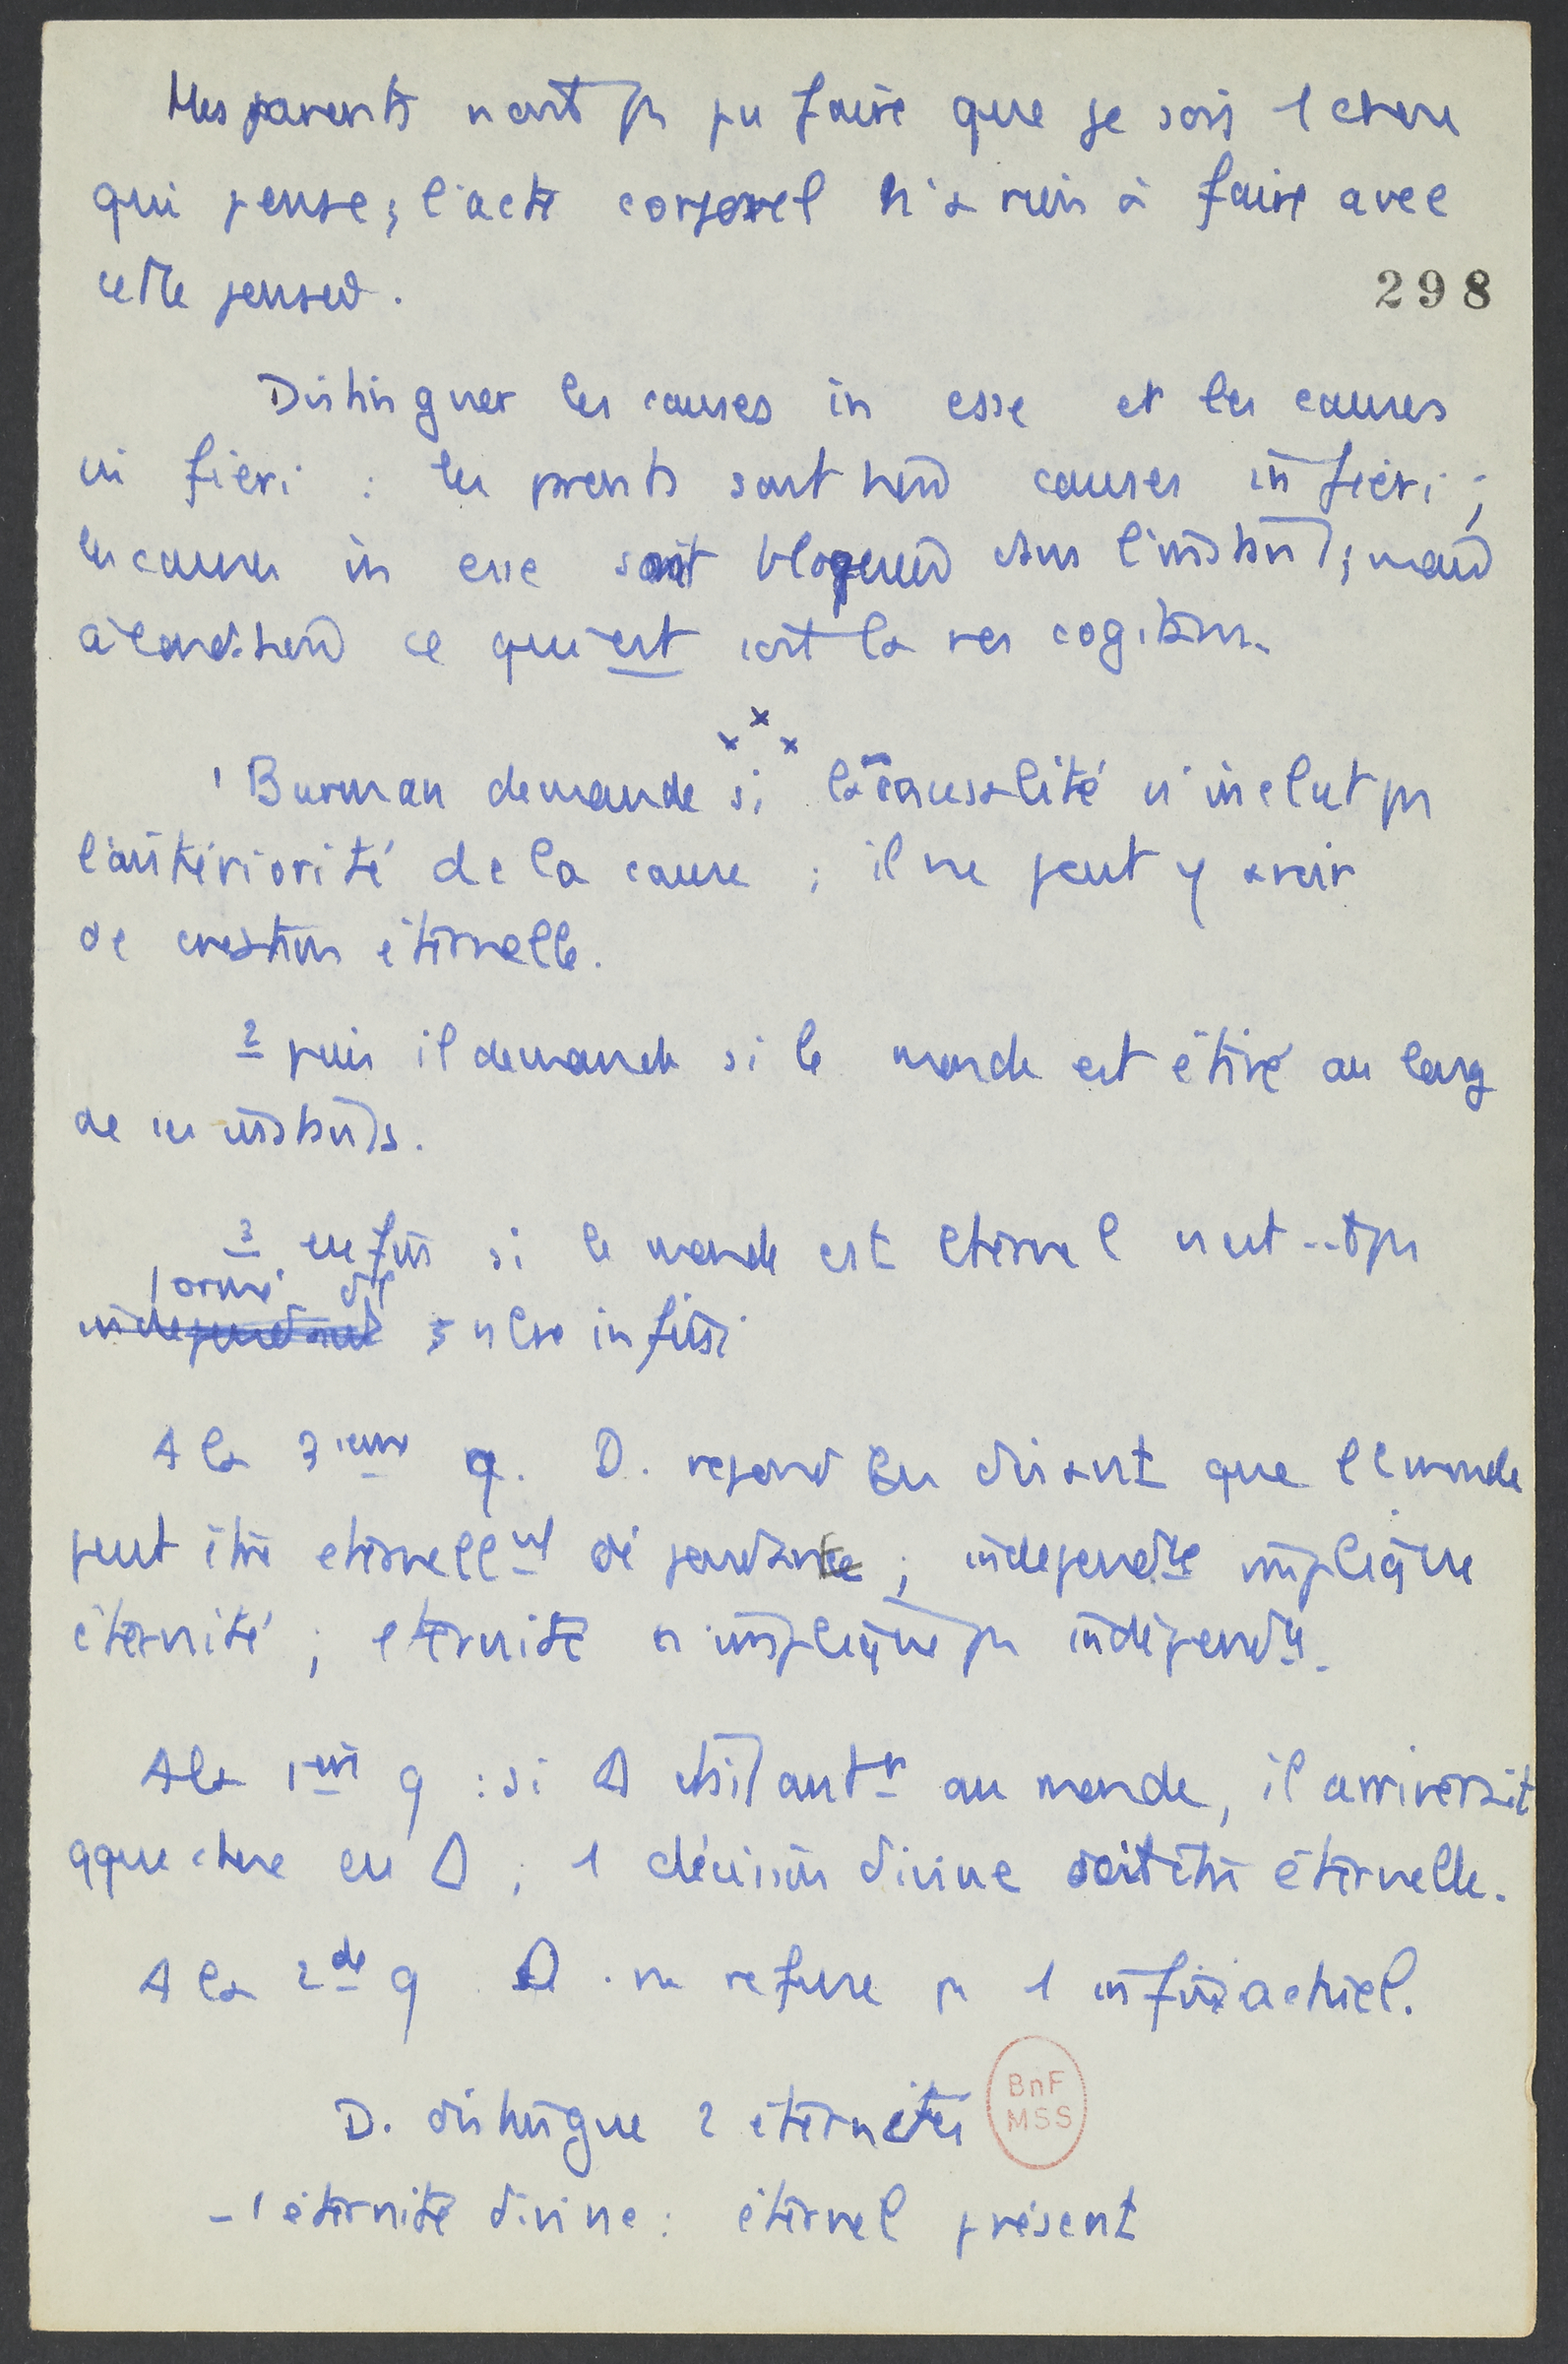 Mes parents n'ont pas pu faire que je sois 1 chose
qui pense ; l'acte corporel n'a rien à faire avec
cette pensée.
298
Distinguer les causes in esse et les causes
in fieri : les parents sont causes in fieri ;
les causes in esse sont dans l'instant ; mais
ce qui est c'est la res cogitans.
x x x
1 Burman demande si la causalité n'inclut pas
l'antériorité de la cause ; il ne peut y avoir
de création éternelle.
2 puis il demande si le monde est étiré au long
de ces instants.
3 enfin si le monde est éternel n'est-- pas
indépendant infini
A la 3ième q. D. répond en disant que le monde
peut être éternellnt dépendant ; indépendce implique
éternité ; éternité n'implique pas indépendce.
A la 1ère q : si Δ était antr au monde, il arriverait
qque chose en Δ ; 1 décision divine doit être éternelle.
A la 2de q D. ne refuse pas 1 infini actuel.
D. distingue 2 éternités
BnF
MSS
- 1 éternité divine : éternel présent